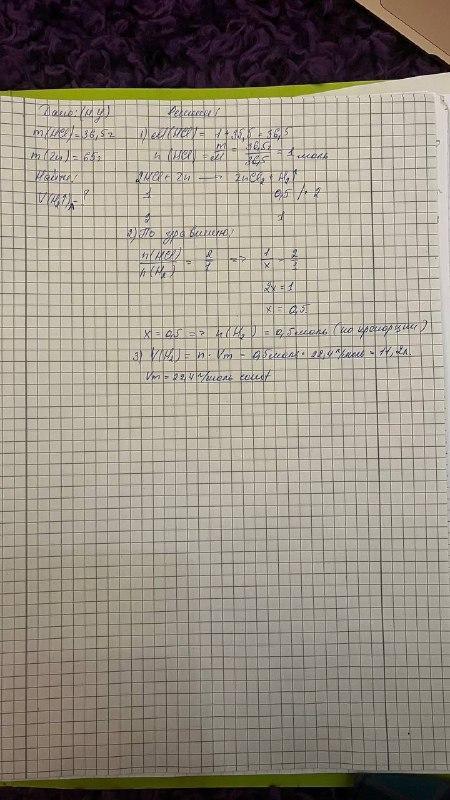 Дано: (н.у)
m(HCl)=36,5г
m(Zn)=65г
Найти:
V(H₂↑)-?
Решение:
1) M(HCl) = 1+35,5 = 36,5
n(HCl) = m/M = 36,5г/36,5 = 1 моль
2HCl + Zn ⟶ ZnCl₂ + H₂↑
1 0,5
2 1
2) По уравнению:
n(HCl)/n(H₂) = 2/1 => 1/x = 2/1
2x=1
x = 0,5
x = 0,5 => n(H₂) = 0,5 моль (по пропорции)
3) V(H₂) = n · Vm = 0,5 моль · 22,4 л/моль = 11,2 л.
Vm = 22,4 л/моль const